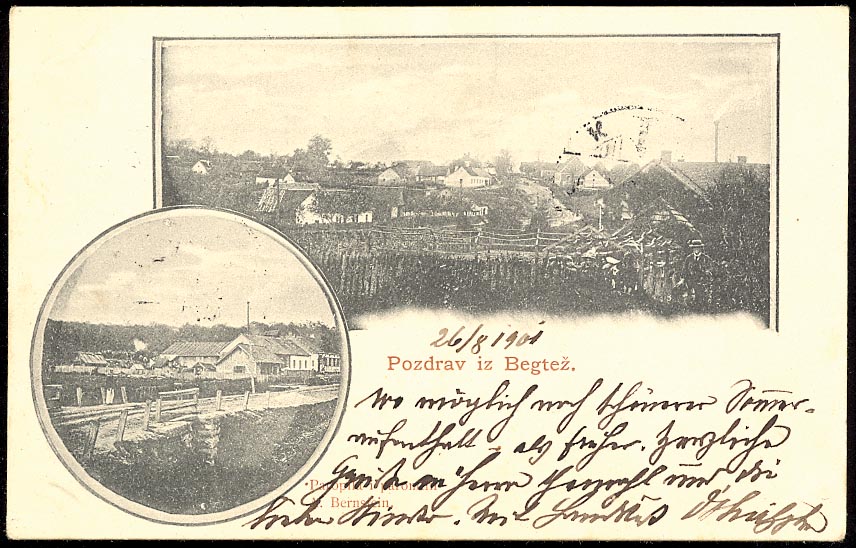 26/8 1901
Pozdrav iz Begtež.
Wo möglich noch schönerer Sommer-
aufenthalt – als früher. Herzliche
Grüße an Herrn Gemahl und die
lieben Kinder. Mit Handkuß
Bernstein.